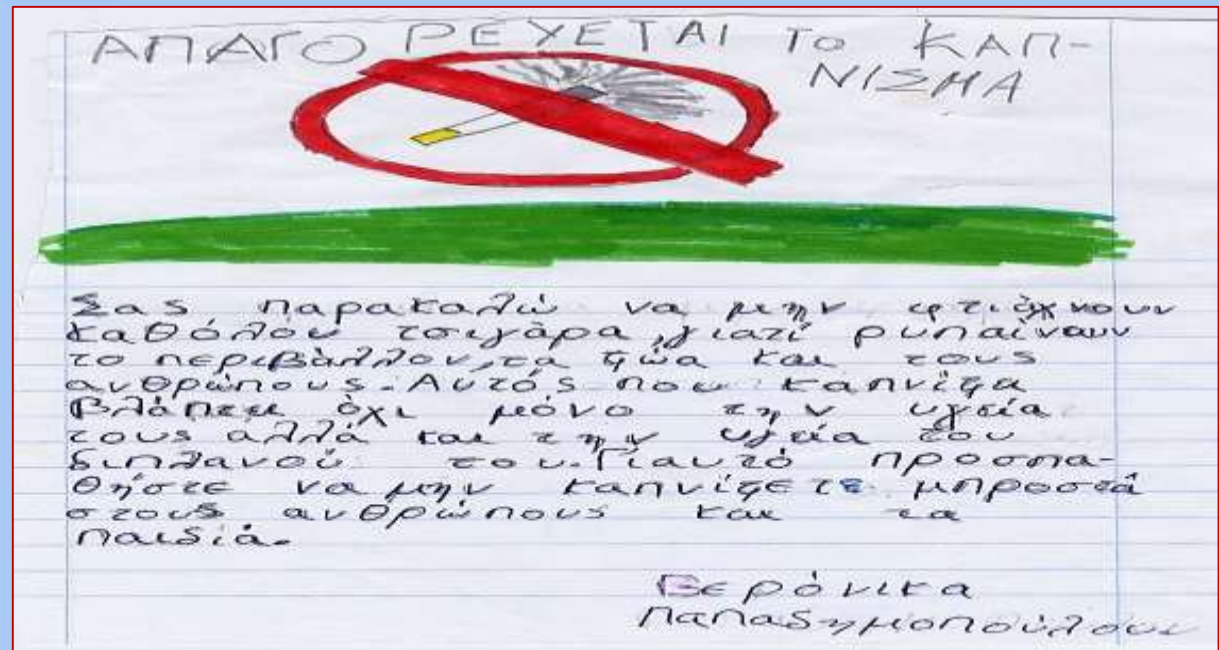 ΑΠΑΓΟΡΕΥΕΤΑΙ ΤΟ ΚΑΠ-
ΝΙΣΜΑ
Σας παρακαλώ να μην φτιάχνουν
καθόλου τσιγάρα, γιατί ρυπαίνουν
το περιβάλλον, τα ζώα και τους
ανθρώπους. Αυτός που καπνίζει
βλάπτει όχι μόνο την υγεία
τους αλλά και την υγεία του
διπλανού του. Γιαυτό προσπα-
θήστε να μην καπνίζετε μπροστά
στους ανθρώπους και τα
παιδιά.
Βερόνικα